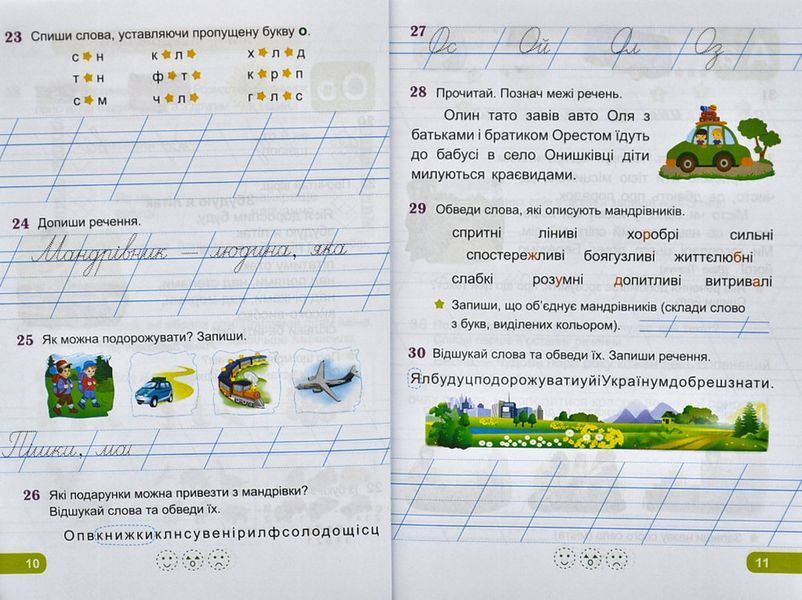 23 Спиши слова, уставляючи пропущену букву о.
с★н к★л★ х★л★д
т★н ф★т★ к★р★п
с★м ч★л★ г★л★с
24 Допиши речення.
Мандрівник — людина, яка
25 Як можна подорожувати? Запиши.
Пішки, маш
26 Які подарунки можна привезти з мандрівки?
Відшукай слова та обведи їх.
Опвкнижкиклнсувенірилфсолодощісц
10
27 Ос Ой Ол Оз
28 Прочитай. Познач межі речень.
Олин тато завів авто Оля з
батьками і братиком Орестом їдуть
до бабусі в село Онишківці діти
милуються краєвидами.
29 Обведи слова, які описують мандрівників.
спритні ліниві хоробрі сильні
спостережливі боягузливі життєлюбні
слабкі розумні допитливі витривалі
★ Запиши, що об’єднує мандрівників (склади слово
з букв, виділених кольором).
30 Відшукай слова та обведи їх. Запиши речення.
ЯлбудуцподорожуватиуйіУкраїнумдобрешзнати.
11